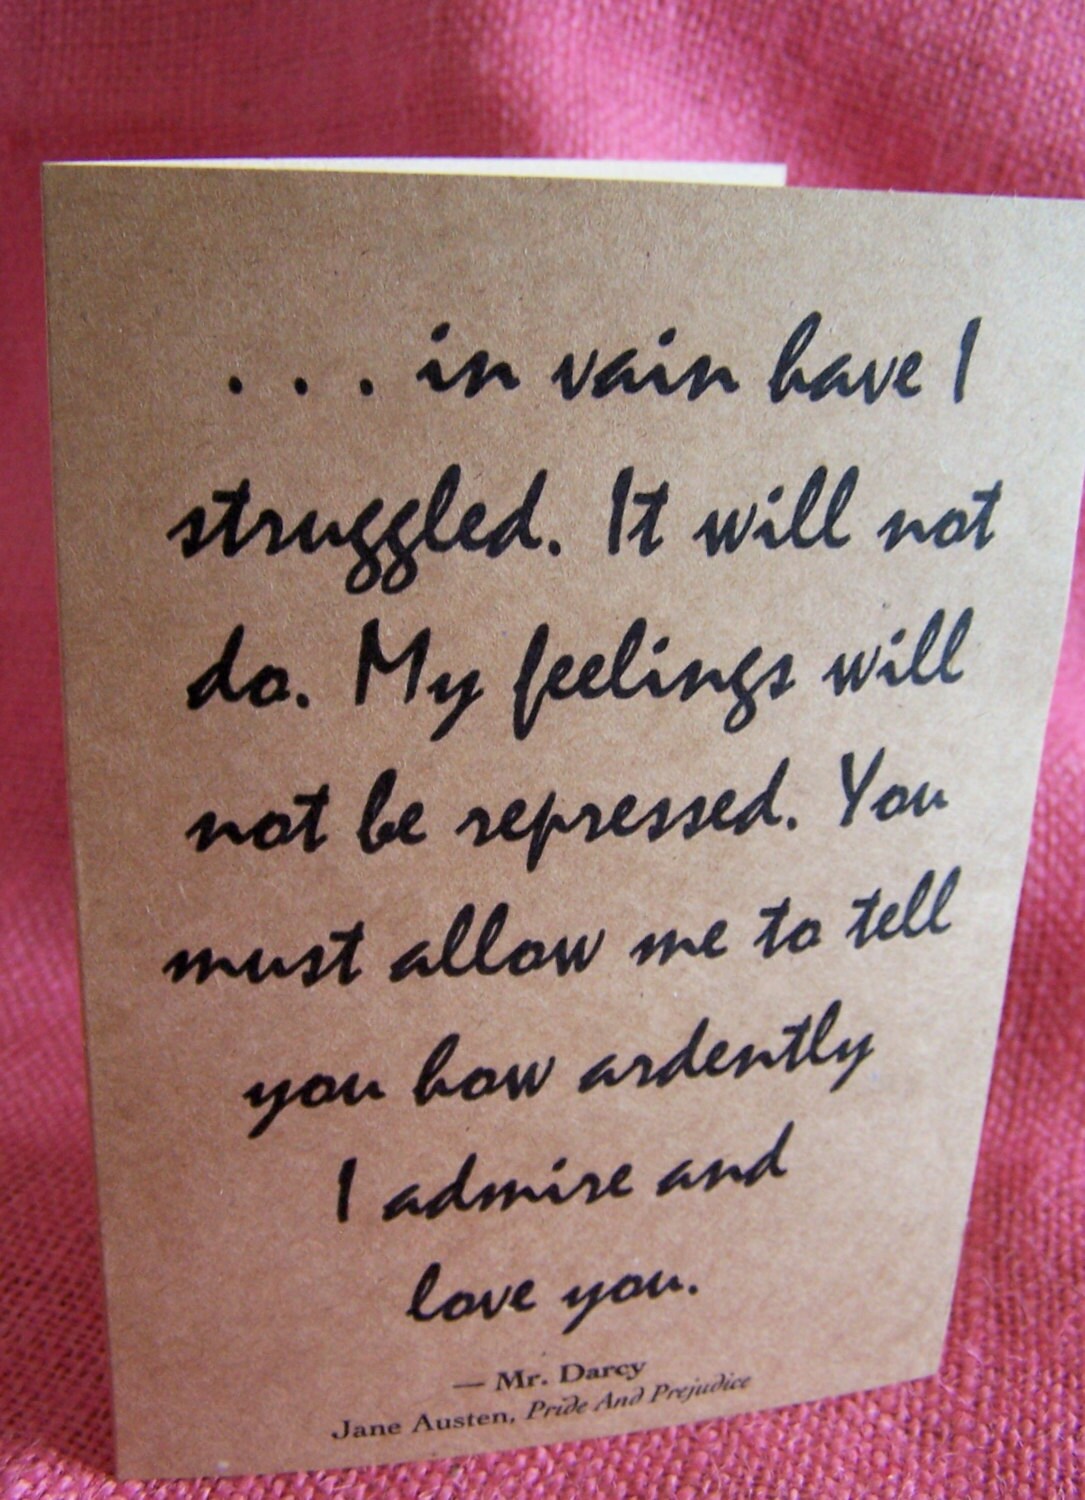 . . . in vain have I
struggled. It will not
do. My feelings will
not be repressed. You
must allow me to tell
you how ardently
I admire and
love you.
— Mr. Darcy
Jane Austen, Pride And Prejudice